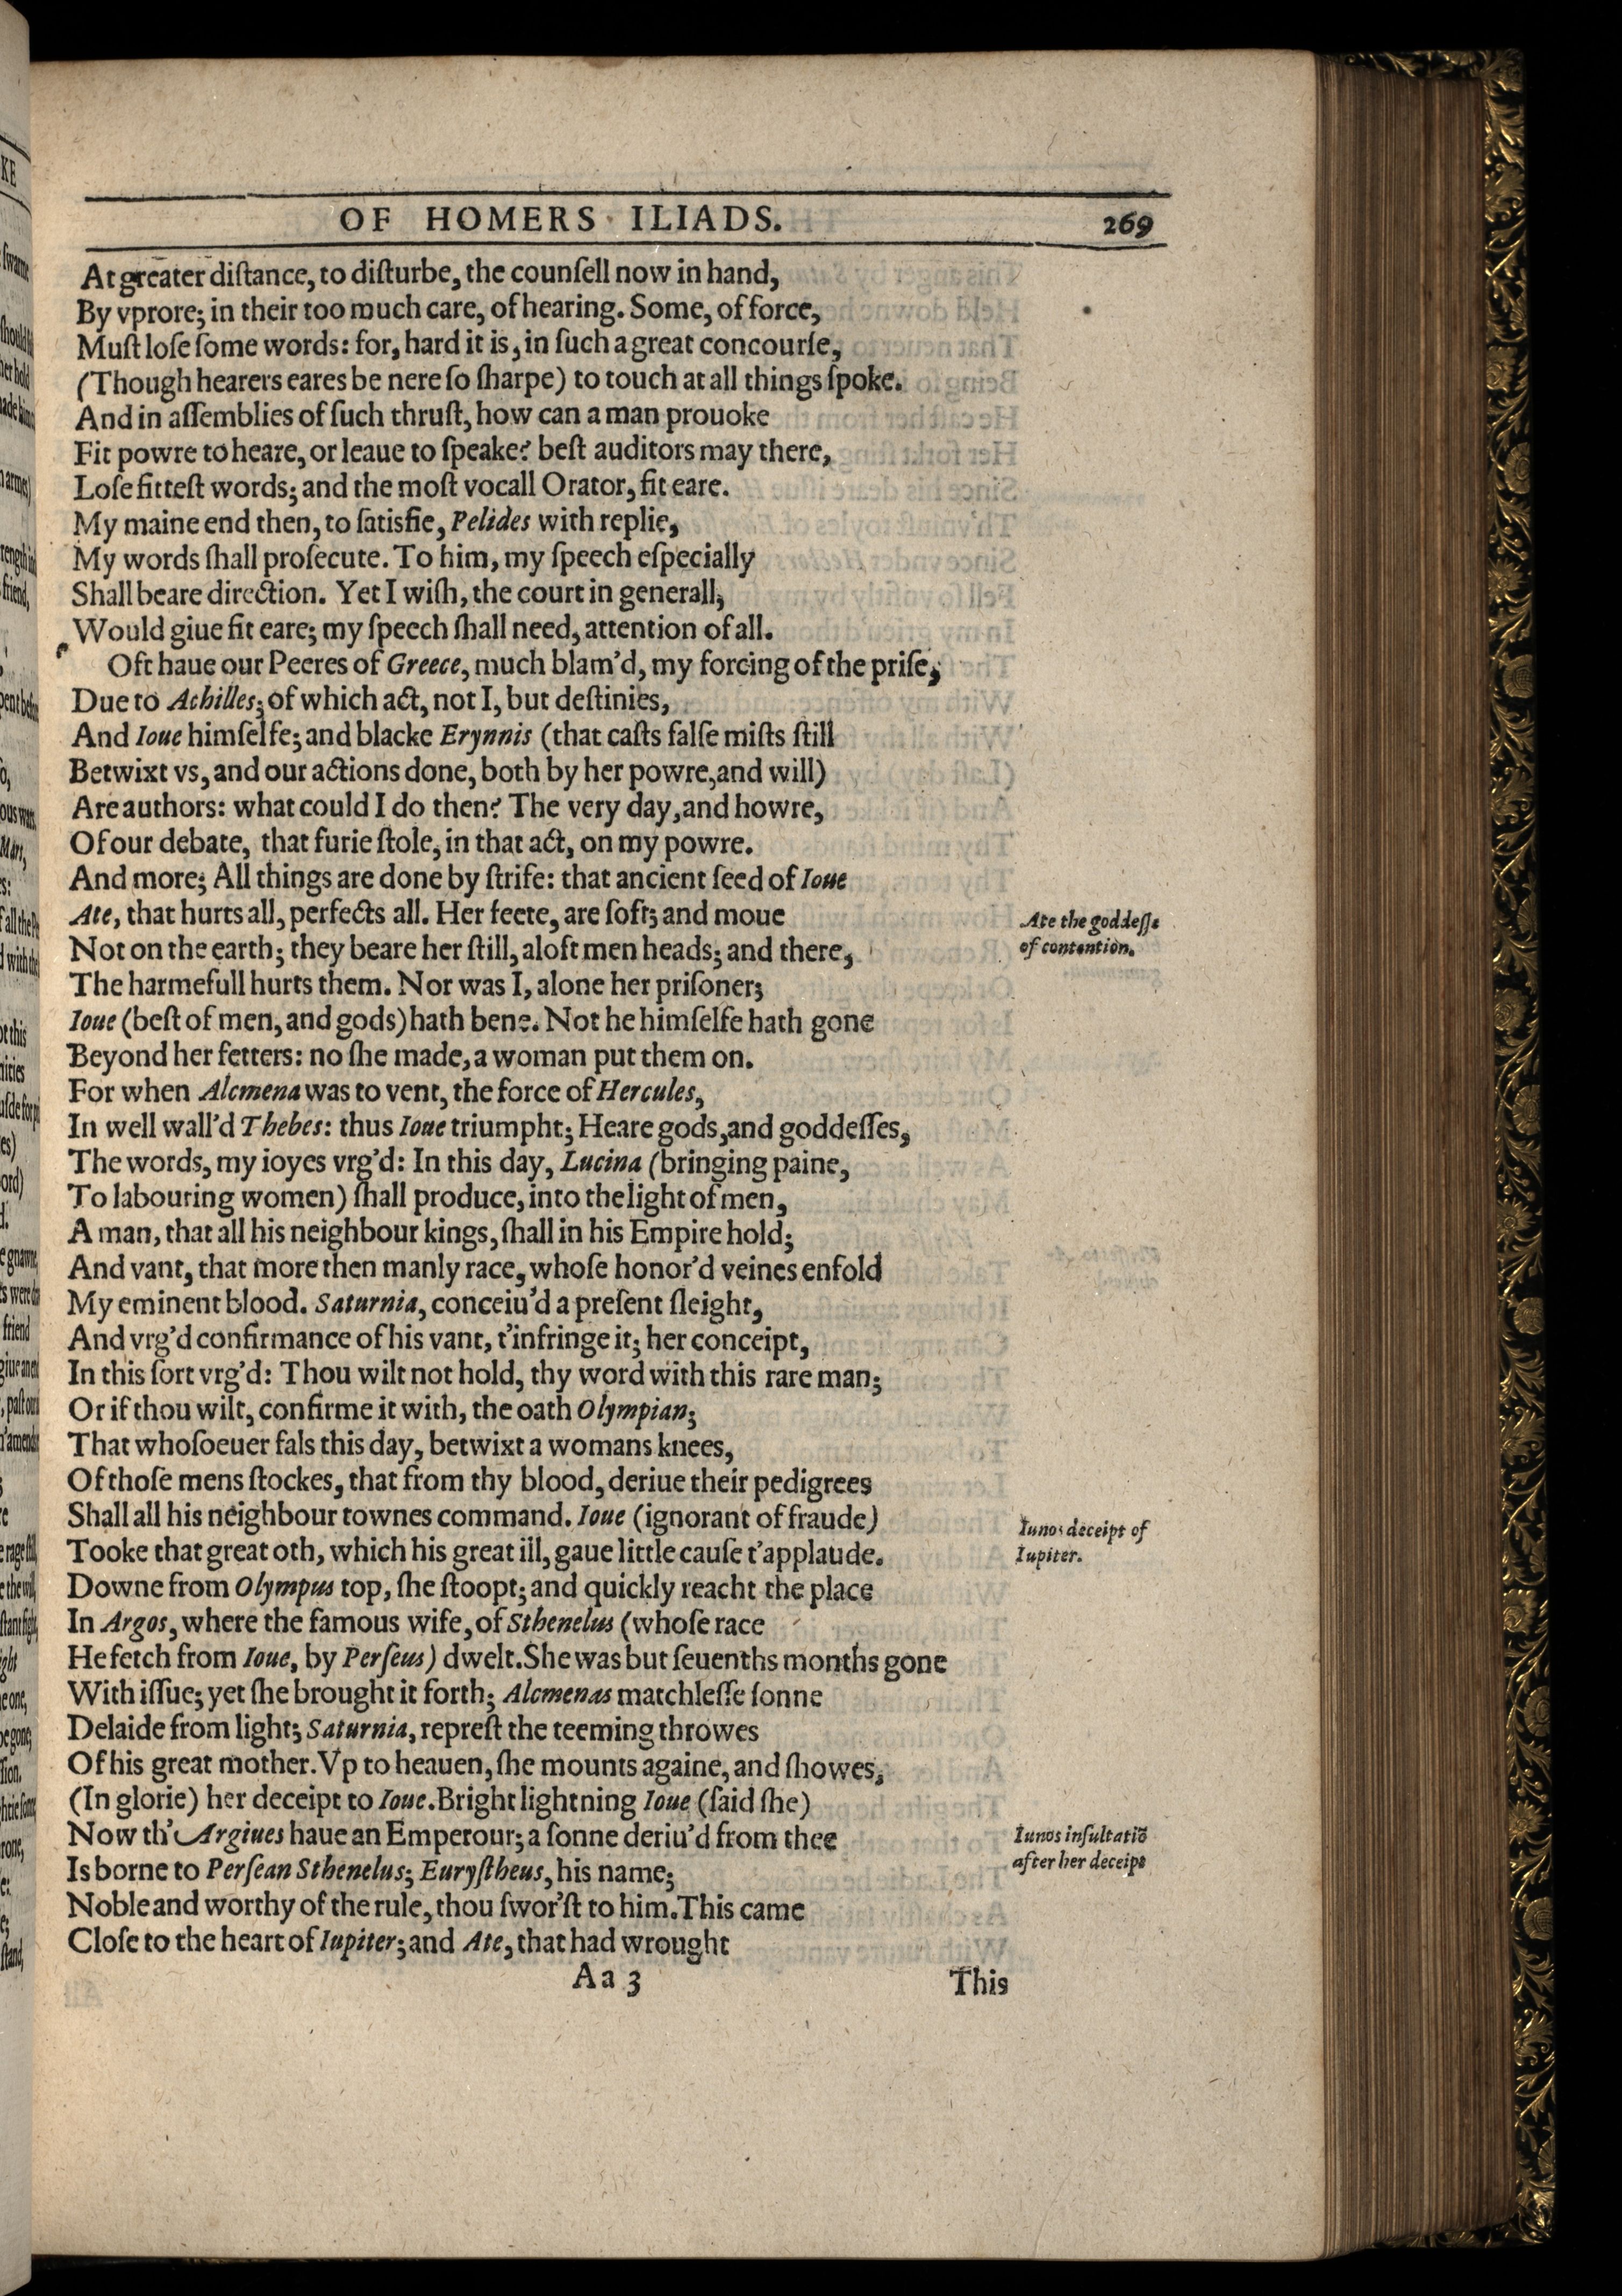 OF HOMERS ILIADS. 269
At greater diſtance, to diſturbe, the counſell now in hand,
By vprore; in their too much care, of hearing. Some, of force,
Muſt loſe ſome words: for, hard it is, in ſuch a great concourſe,
(Though hearers eares be nere ſo ſharpe) to touch at all things ſpoke.
And in aſſemblies of ſuch thruſt, how can a man prouoke
Fit powre to heare, or leaue to ſpeake? beſt auditors may there,
Loſe fitteſt words; and the moſt vocall Orator, fit eare.
My maine end then, to ſatisfie, Pelides with replie,
My words ſhall proſecute. To him, my ſpeech eſpecially
Shall beare direction. Yet I wiſh, the court in generall,
Would giue fit eare; my ſpeech ſhall need, attention of all.
Oft haue our Peeres of Greece, much blam'd, my forcing of the priſe,
Due to Achilles; of which act, not I, but deſtinies,
And Ioue himſelfe; and blacke Erynnis (that caſts falſe miſts ſtill
Betwixt vs, and our actions done, both by her powre, and will)
Are authors: what could I do then? The very day, and howre,
Of our debate, that furie ſtole, in that act, on my powre.
And more; All things are done by ſtrife: that ancient ſeed of Ioue
Ate, that hurts all, perfects all. Her feete, are ſoft; and moue
Ate the goddeſſe
of contention.
Not on the earth; they beare her ſtill, aloft men heads; and there,
The harmefull hurts them. Nor was I, alone her priſoner;
Ioue (beſt of men, and gods) hath bene. Not he himſelfe hath gone
Beyond her fetters: no ſhe made, a woman put them on.
For when Alcmena was to vent, the force of Hercules,
In well wall'd Thebes: thus Ioue triumpht; Heare gods, and goddeſſes,
The words, my ioyes vrg'd: In this day, Lucina (bringing paine,
To labouring women) ſhall produce, into the light of men,
A man, that all his neighbour kings, ſhall in his Empire hold;
And vant, that more then manly race, whoſe honor'd veines enfold
My eminent blood. Saturnia, conceiu'd a preſent ſleight,
And vrg'd confirmance of his vant, t'infringe it; her conceipt,
In this ſort vrg'd: Thou wilt not hold, thy word with this rare man;
Or if thou wilt, confirme it with, the oath Olympian;
That whoſoeuer fals this day, betwixt a womans knees,
Of thoſe mens ſtockes, that from thy blood, deriue their pedigrees
Shall all his neighbour townes command. Ioue (ignorant of fraude)
Iunos deceipt of
Iupiter.
Tooke that great oth, which his great ill, gaue little cauſe t'applaude.
Downe from Olympus top, ſhe ſtoopt; and quickly reacht the place
In Argos, where the famous wife, of Sthenelus (whoſe race
He fetch from Ioue, by Perſeus) dwelt. She was but ſeuenths months gone
With iſſue; yet ſhe brought it forth; Alcmenas matchleſſe ſonne
Delaide from light; Saturnia, repreſt the teeming throwes
Of his great mother. Vp to heauen, ſhe mounts againe, and ſhowes,
(In glorie) her deceipt to Ioue. Bright lightning Ioue (ſaid ſhe)
Now th' Argiues haue an Emperour; a ſonne deriu'd from thee
Iunos inſultatiõ
after her deceipt
Is borne to Perſean Sthenelus; Euryſtheus, his name;
Noble and worthy of the rule, thou ſwor'ſt to him. This came
Cloſe to the heart of Iupiter; and Ate, that had wrought
Aa 3 This